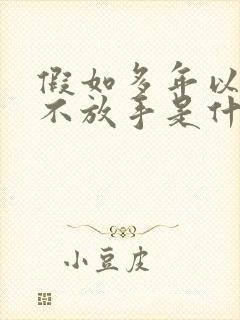 假如多年以
不放手是什
小豆皮